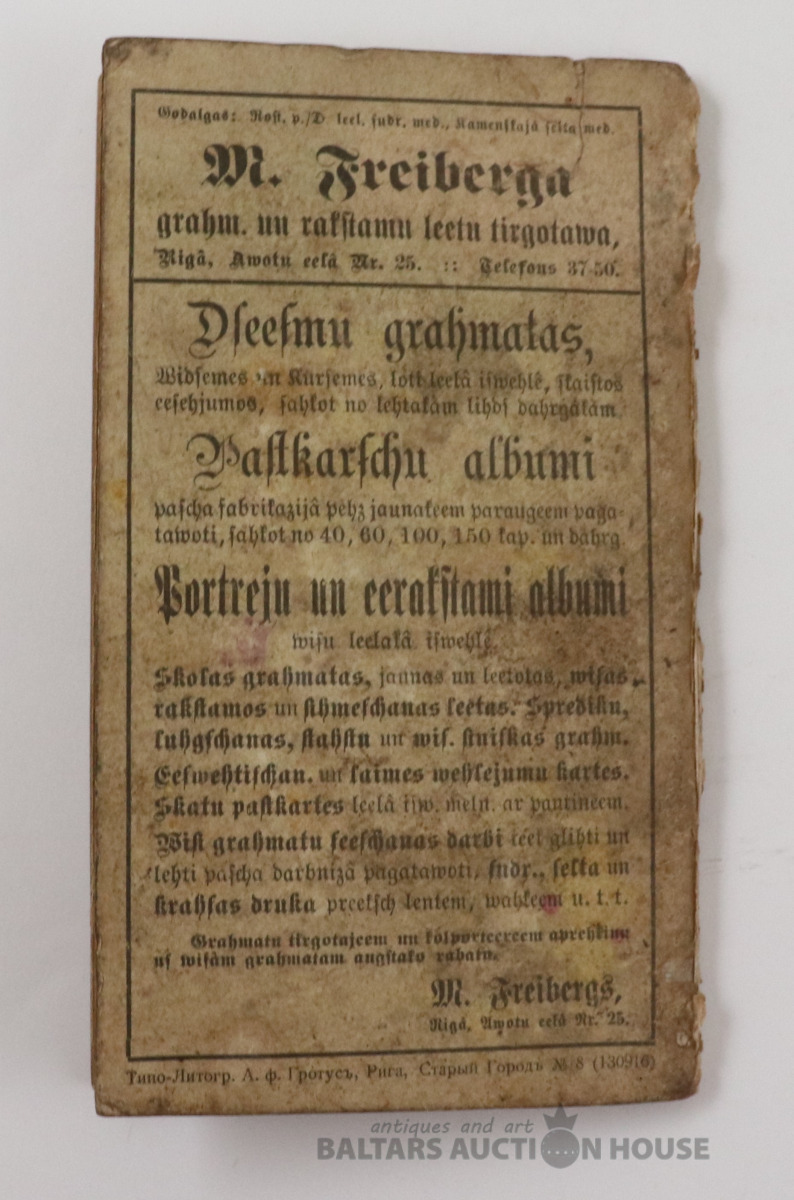 Godalgas: Rost. p./D leel. sudr. med., Kamenskajâ selta med.
M. Freiberga
grahm. un rakstamu leetu tirgotawa,
Rigâ, Awotu eelâ Nr. 25. :: Telefons 37-56.
Dseesmu grahmatas,
Widsemes un Kursemes, loti leelâ iswehlê, skaistos
eesehjumos, sahkot no lehtakâm lihds dahrgâkâm.
Pastkarschu albumi
pascha fabrikazijâ pehz jaunakeem paraugeem paga-
tawoti, sahkot no 40, 60, 100, 150 kap. un dahrg.
Portreju un eerakstami albumi
wisu leelakâ iswehlê.
Skolas grahmatas, jaunas un leetotas, wisas
rakstamos un sihmeschanas leetas. Sprediku,
luhgschanas, stahstu un wis. stuiskas grahm.
Eeswehtischan. un laimes wehlejumu kartes.
Skatu pastkartes leelâ isw. meln. ar pantineem.
Wisi grahmatu seeschanas darbi teek glihti un
lehti pascha darbnizâ pagatawoti, sudr., selta un
krahsas druka preeksch lentem, wahkeem u. t. t.
Grahmatu tirgotajeem un kolporteereem aprehkinu
us wisâm grahmatam augstako rabatu.
M. Freibergs,
Rigâ, Awotu eelâ Nr. 25.
Типо-Литогр. А. ф. Гротусъ, Рига, Старый Городъ № 8 (130916)
antiques and art
BALTARS AUCTION HOUSE